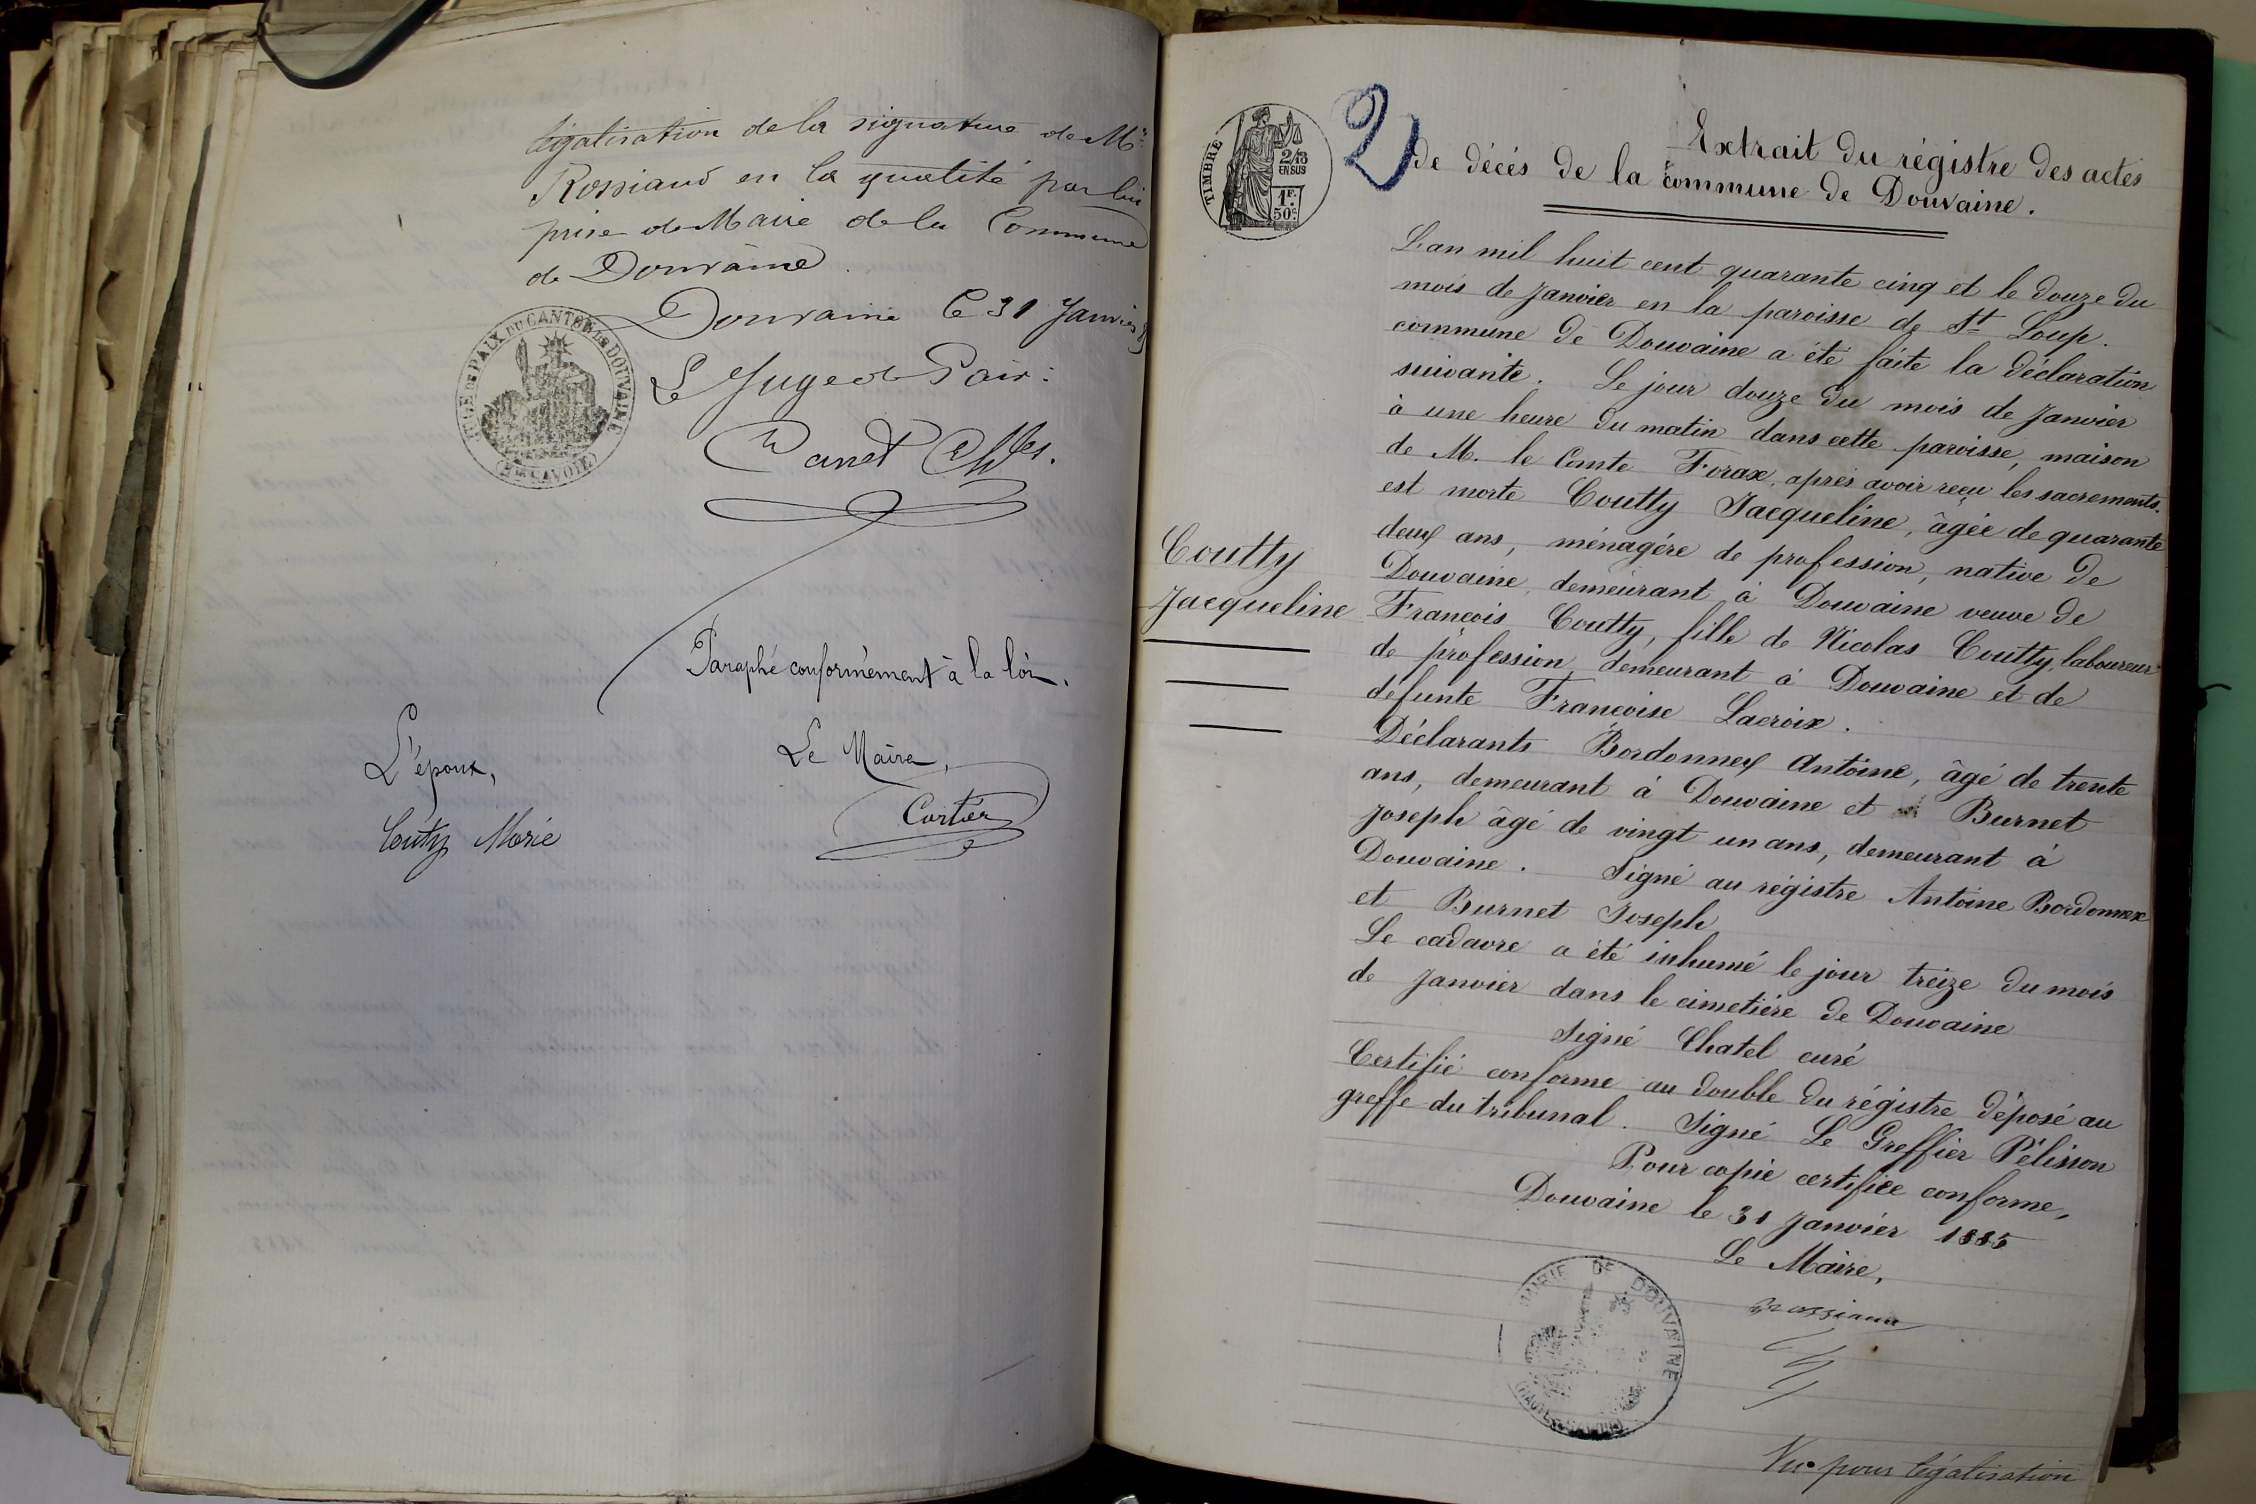 légalisation de la signature de Mr
Rossiaud en la qualité par lui
prise de Maire de la Commune
de Douvaine.
Douvaine le 31 Janvier
Le Juge de Paix :
JUGE DE PAIX DU CANTON DE DOUVAINE
(Hte SAVOIE)
Paraphé conformément à la loi.
L'époux,
Le Maire,
Couty Marie
Cartier
TIMBRE
2/10
EN SUS
1F.
50c
2
Extrait du régistre des actes
de décés de la commune de Douvaine.
L'an mil huit cent quarante cinq et le douze du
mois de Janvier en la paroisse de St Loup.
commune de Douvaine a été faite la déclaration
suivante. Le jour douze du mois de Janvier
à une heure du matin dans cette paroisse, maison
de M. le Comte Forax, aprés avoir reçu les sacrements.
est morte Coutty Jacqueline, âgée de quarante
deux ans, ménagére de profession, native de
Douvaine, demeurant à Douvaine veuve de
François Coutty, fille de Nicolas Coutty, laboureur
de profession demeurant à Douvaine et de
defunte Françoise Lacroix.
Coutty
Jacqueline
Déclarants Bordonnex Antoine, âgé de trente
ans, demeurant à Douvaine et Burnet
Joseph âgé de vingt un ans, demeurant à
Douvaine. Signé au régistre Antoine Bordonnex
et Burnet Joseph
Le cadavre a été inhumé le jour treize du mois
de Janvier dans le cimetiére de Douvaine
Signé Chatel curé
Certifié conforme au double du régistre déposé au
greffe du tribunal. Signé Le Greffier Pélisson
Pour copie certifiée conforme,
Douvaine le 31 Janvier 1885
Le Maire,
Rossiaud
MAIRIE DE DOUVAINE
(HAUTE-SAVOIE)
Vu pour légalisation